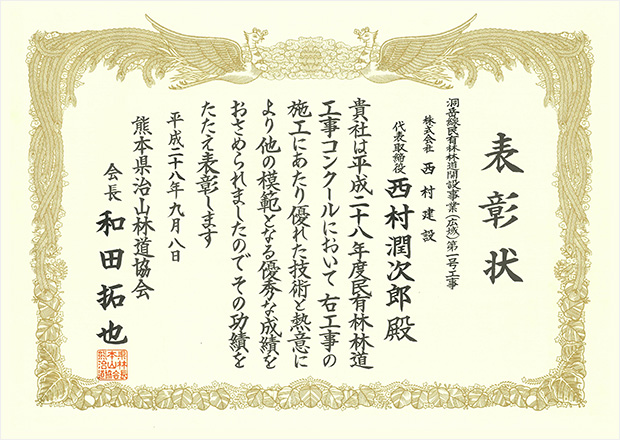 表彰状
洞岳線民有林林道開設事業(広域)第一号工事
株式会社 西村建設
代表取締役 西村潤次郎 殿
貴社は平成二十八年度民有林林道
工事コンクールにおいて 右工事の
施工にあたり優れた技術と熱意に
より他の模範となる優秀な成績を
おさめられましたので その功績を
たたえ表彰します
平成二十八年九月八日
熊本県治山林道協会
会長 和田拓也